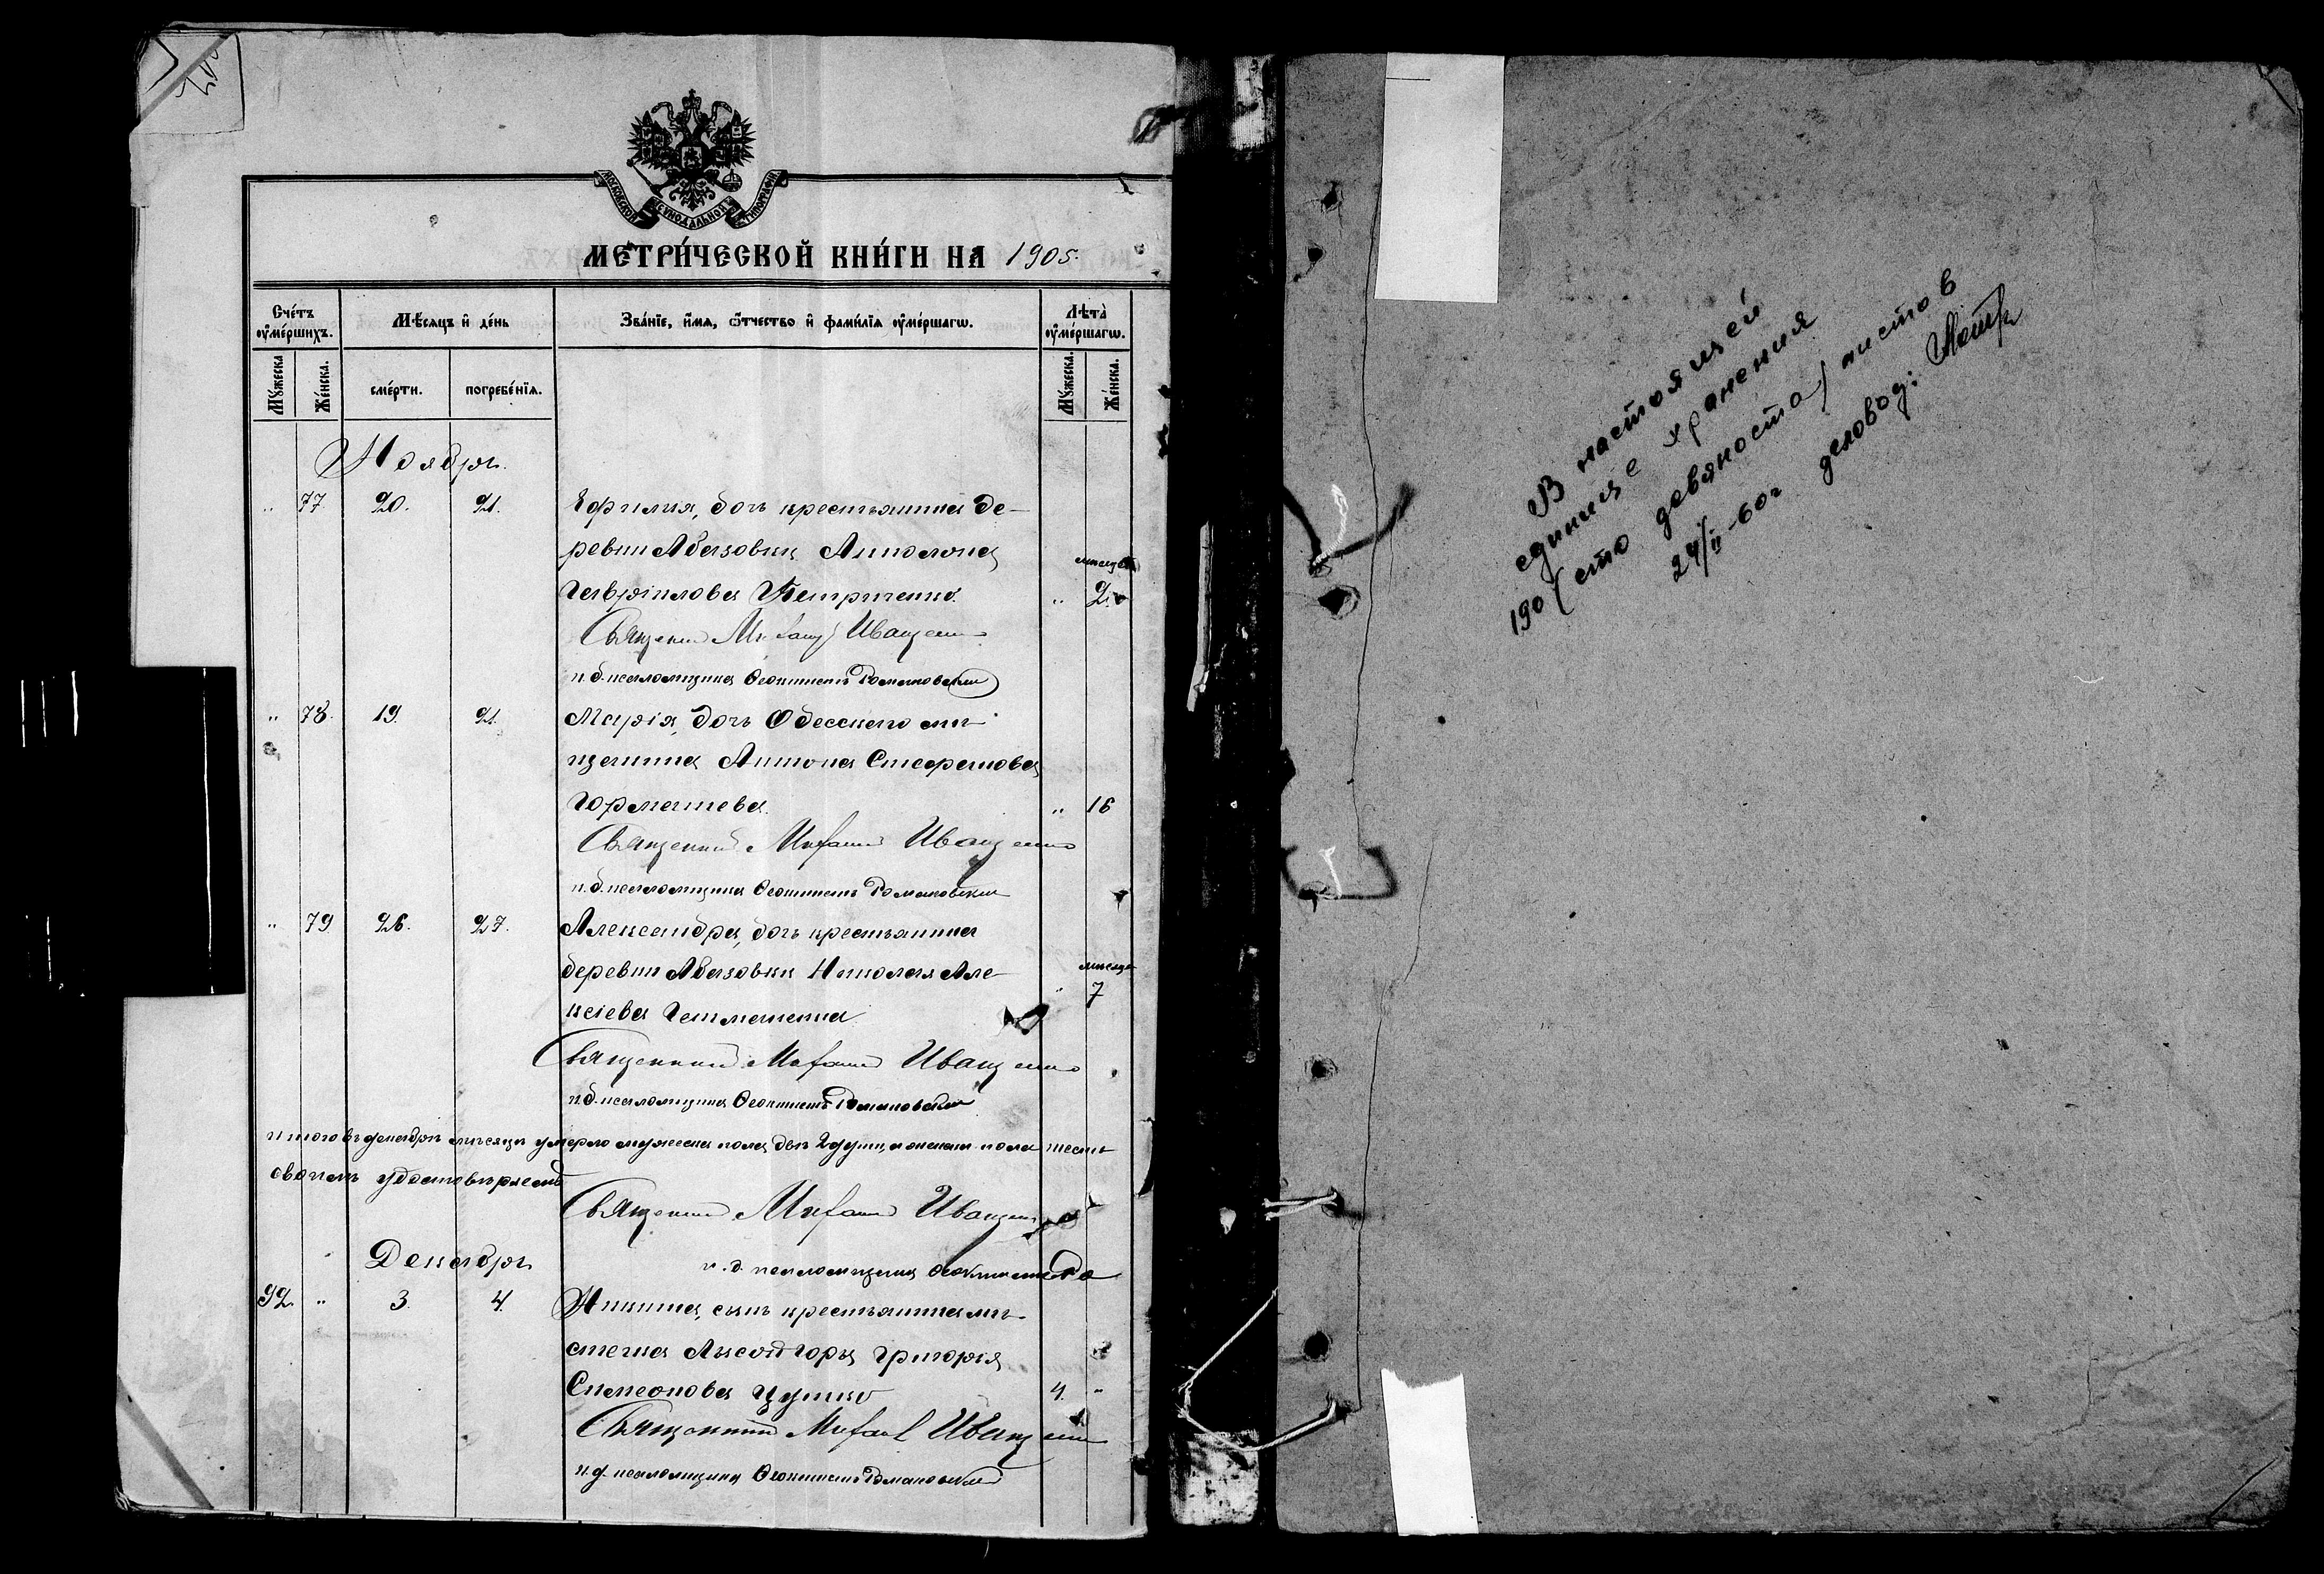 МОСКОВСКОЙ СѴНОДАЛЬНОЙ ТИПОГРАФІИ
МЕТРИ́ЧЕСКОЙ КНИ́ГИ НА 1905.
Сче́тъ оу҆ме́ршихъ.
Мѣ́сяцъ и҆ де́нь
Зва́нїе, и҆́мя, ѻ҆́тчество и҆ фами́лїя оу҆ме́ршагѡ.
Лѣ́та оу҆ме́ршагѡ.
Му́жеска.
Же́нска.
сме́рти.
погребе́нїя.
Му́жеска.
Же́нска.
Ноябрь.
" 77. 20. 21. дочь крестьянина де-
ревни Абазовки
мѣсяца
Гавріилова Петриченко. " 2.
Священник Михаил Иващенко
и. д. псаломщика Феоктистъ Романовский
" 78. 19. 21. Марія, дочь Одесскаго мѣ-
щанина Антона Стефанова
" 16
Священник Михаил Иващенко
и. д. псаломщика Феоктистъ Романовский
" 79 26. 27. Александра, дочь крестьянина
деревни Абазовки Николая Але- мѣсяцев
ксіева Гетманенка " 7
Священник Михаил Иващенко
и. д. псаломщика Феоктистъ Романовский
итого въ мѣсяцѣ умерло мужеска пола двѣ 2 души, а женска пола шесть
в чемъ удостовѣряемъ
Священник Михаил Иващенко
Декабрь и. д. псаломщика Феоктистъ Ро
92. " 3. 4. Никита, сынъ крестьянина мѣ-
стечка Лысой Горы Григорія
Симеонова Цушко 4. "
Священник Михаил Иващенко
и. д. псаломщика Феоктистъ Романовский
В настоящей
единице хранения
190 (сто девяносто) листов
24/II-60г деловод: